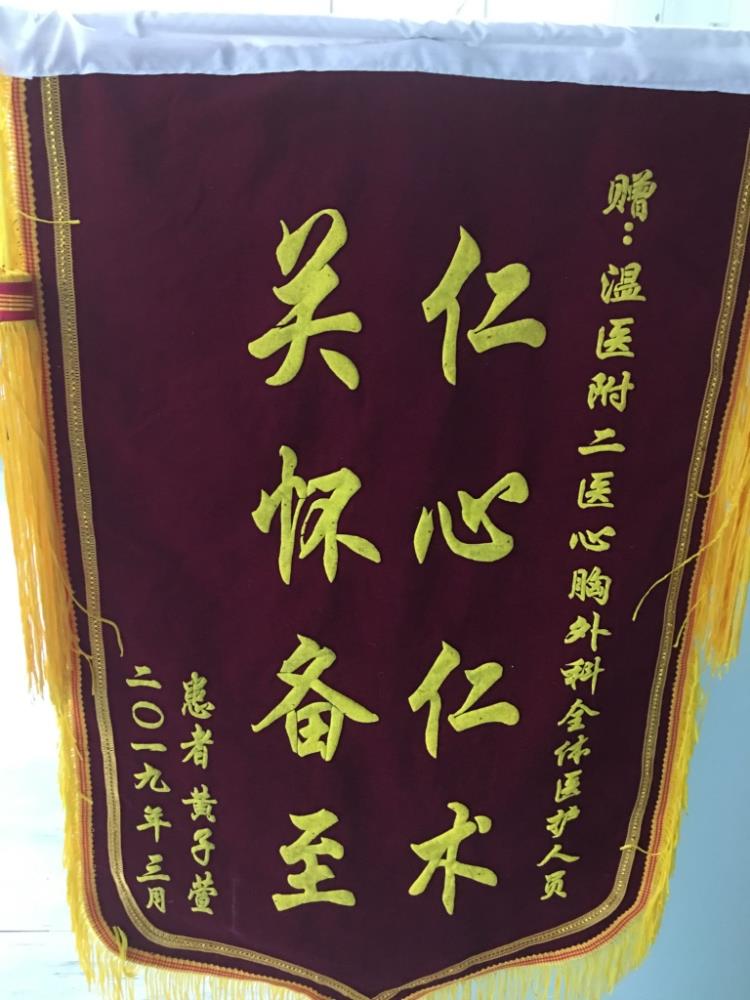 赠：温医附二医心胸外科全体医护人员
仁心仁术
关怀备至
患者黄子萱
二〇一九年三月